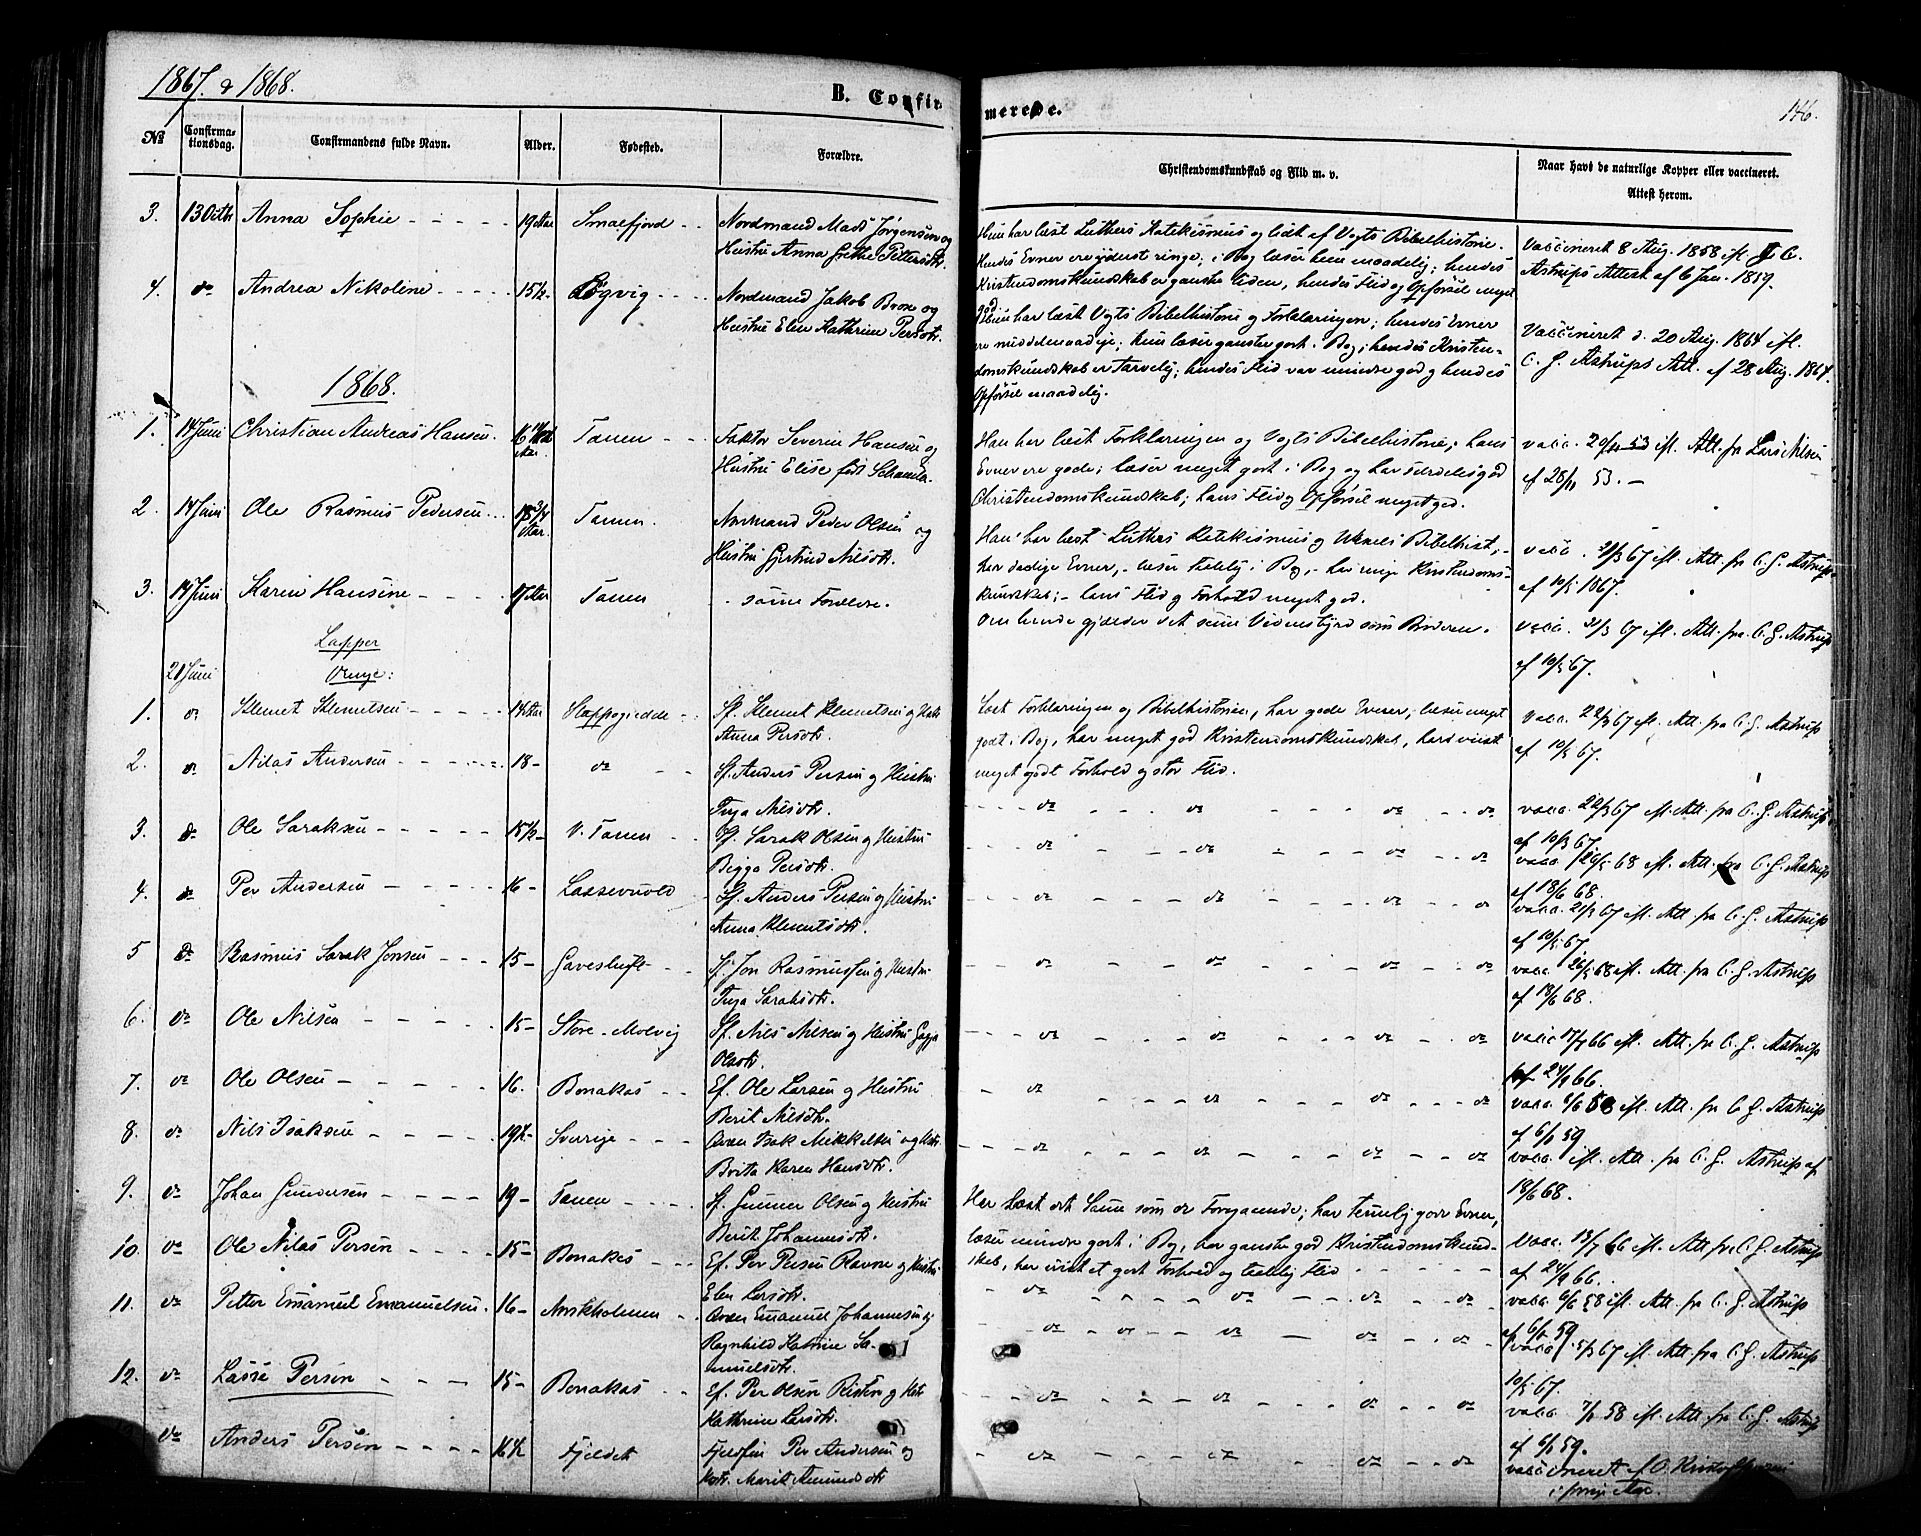 1867. & 1868.
B. Confir-
merede.
146.
No
Confirma-
tionsdag.
Confirmandens fulde Navn.
Alder.
Fødested.
Forældre.
Christendomskundskab og Flid m. v.
Naar havd de naturlige Kopper eller vaccineret.
Attest herom.
3. 13 Octbr Anna Sophie 19 Aar Smalfjord Nordmand Mads Jørgensen og
Hustru Anna Grethe Pettersdtr.
Hun har læst Luthers Katekismus og lidt af Vogts Bibelhistorie.
Hendes Evner ere yderst ringe, i Bog læser hun maadelig; hendes
Kristendomskundskab er ganske liden, hendes Flid og Opførsel meget
god
Vaccineret 8 Aug. 1858 ifl. C.
Astrups Attest af 6 Jan. 1859.
4. do Andrea Nikoline 15½ Nordmand Jakob og
Hustru Elen Kathrine Persdtr.
Hun har læst Vogts Bibelhistorie og Forklaringen; hendes Evner
ere middelmaadige, hun læser ganske godt i Bog; hendes Kristen-
domskundskab er tarvelig; hendes Flid var mindre god og hendes
Opførsel maadelig.
Vaccineret d. 20 Aug. 1864 ifl.
C. G. Astrups Att. af 28 Aug. 1867.
1868.
1. 14 Juni Christian Andreas Hansen Aar. Tanen Faktor Severin Hansen og
Hustru Elise født
Han har læst Forklaringen og Vogts Bibelhistorie; hans
Evner ere gode; læser meget godt i Bog og har særdeles god
Christendomskundskab; hans Flid og Opførsel meget god.
vacc. 53 ifl. Att. fra Lars Nilsen
af 28/11 53.
2. 14 Juni Ole Rasmus Pedersen 18¾ Aar. Tanen. Nordmand Peder Olsen og
Hustru Gjertrud Nilsdtr.
Han har læst Luthers Katekismus og Wexels Bibelhist.,
har Evner, læser i Bog, har Kristendoms-
kundskab; hans Flid og Forhold meget god.
vacc. 21/3 67 ifl. Att. fra C. G. Astrup
af 10/5 1867.
3. 14 Juni Karen Hansine 17 Aar Tanen samme Forældre.
Om hende gjælder det samme Vidensbyrd som Broderen.
vacc. 21/3 67 ifl. Att. fra C. G. Astrup
af 10/5 67.
Lapper
21 Juni Drenge:
1. do Klemet Klemetsen 14 Aar Stappogiedde Sf. Klemet Klemetsen og Hustr
Anna Persdtr.
Læst Forklaringen og Bibelhistorien, har gode Evner, læser meget
godt i Bog, har meget god Kristendomskundskab, har viist
meget godt Forhold og stor Flid.
vacc. 22/3 67 ifl. Att. fra C. G. Astrup
af 10/5 67.
2. do Nilas Andersen 18 do Sf. Anders Persen og Hustru
Inga Nilsdtr.
do do do do vacc. 22/3 67 ifl. Att. fra C. G. Astrup
af 10/5 67.
3. do Ole Saraksen 15½ V. Tanen Sf. Sarak Olsen og Hustru
Bigga Persdtr.
do do do do vacc. 26/5 68 ifl. Att. fra C. G. Astrup
af 18/6 68.
4. do Per Andersen 16 Lassevuold Sf. Anders Persen og Hustru
Anna Klemetsdtr.
do do do do vacc. 21/3 67 ifl. Att. fra C. G. Astrup
af 10/5 67.
5 do Rasmus Sarak Jonsen 15 Gavesluft Sf. Jon Rasmussen og Hustru
Inga Saraksdtr.
do do do do vacc. 26/5 68 ifl. Att. fra C. G. Astrup
af 18/6 68.
6. do Ole Nilsen 15 Store-Molvig Sf. Nils Nilsen og Hustru Gagga
Olsdtr.
do do do do vacc 17/7 66 ifl. Att. fra C. G. Astrup
af 24/9 66.
7. do Ole Olsen 16. Bonakas Ef. Ole Larsen og Hustru
Berit Nilsdtr.
do do do do vacc. 6/6 58 ifl. Att. fra C. G. Astrup
af 6/1 59.
8. do Nils Isaksen 19½ Sverige Qvæn Isak Mikkelsen og Hustr.
Brita Karen Hansdtr.
do do do do vacc. ifl. Att. fra C. G. Astrup af
18/6 68.
9. do Johan Gundersen 19 Tanen Sf. Gunner Olsen og Hustru
Berit Johannesdtr.
Har læst det Samme som de Foregaaende; har temmelig gode Evner,
læser mindre godt i Bog, har ganske god Kristendomskund-
skab, har viist et godt Forhold og Flid
10. do Ole Nilas Persen 15 Bonakas Ef. Per Persen Ravne og Hustru
Elen Larsdtr.
do do do do Vacc. 13/7 66 ifl. Att. fra C. G. Astrup
af 24/9 66.
11. do Petter Emanuel Emanuelsen 16 Qvæn Emanuel Johannesen og
Ragnhild Katrine Sa-
muelsdtr.
do do do do vacc. 6/6 58 ifl. Att. fra C. G. Astrup
af 6/1 59.
12. do Lasse Persen 15 Bonakas Ef. Per Olsen Risten og Hustr
Kathrine Larsdtr.
do do do do vacc. 67 ifl. Att. fra C. G. Astrup
10/5 67.
do Anders Persen 16½ Fjeldet Fjeldfin Per Andersen og
Hustr. Marit Amundsdtr
do do do do vacc. 58 ifl. Att. fra C. G. Astrup
af 6/1 59.
vaccineret af O. Kristoffersen
i forrige Aar.